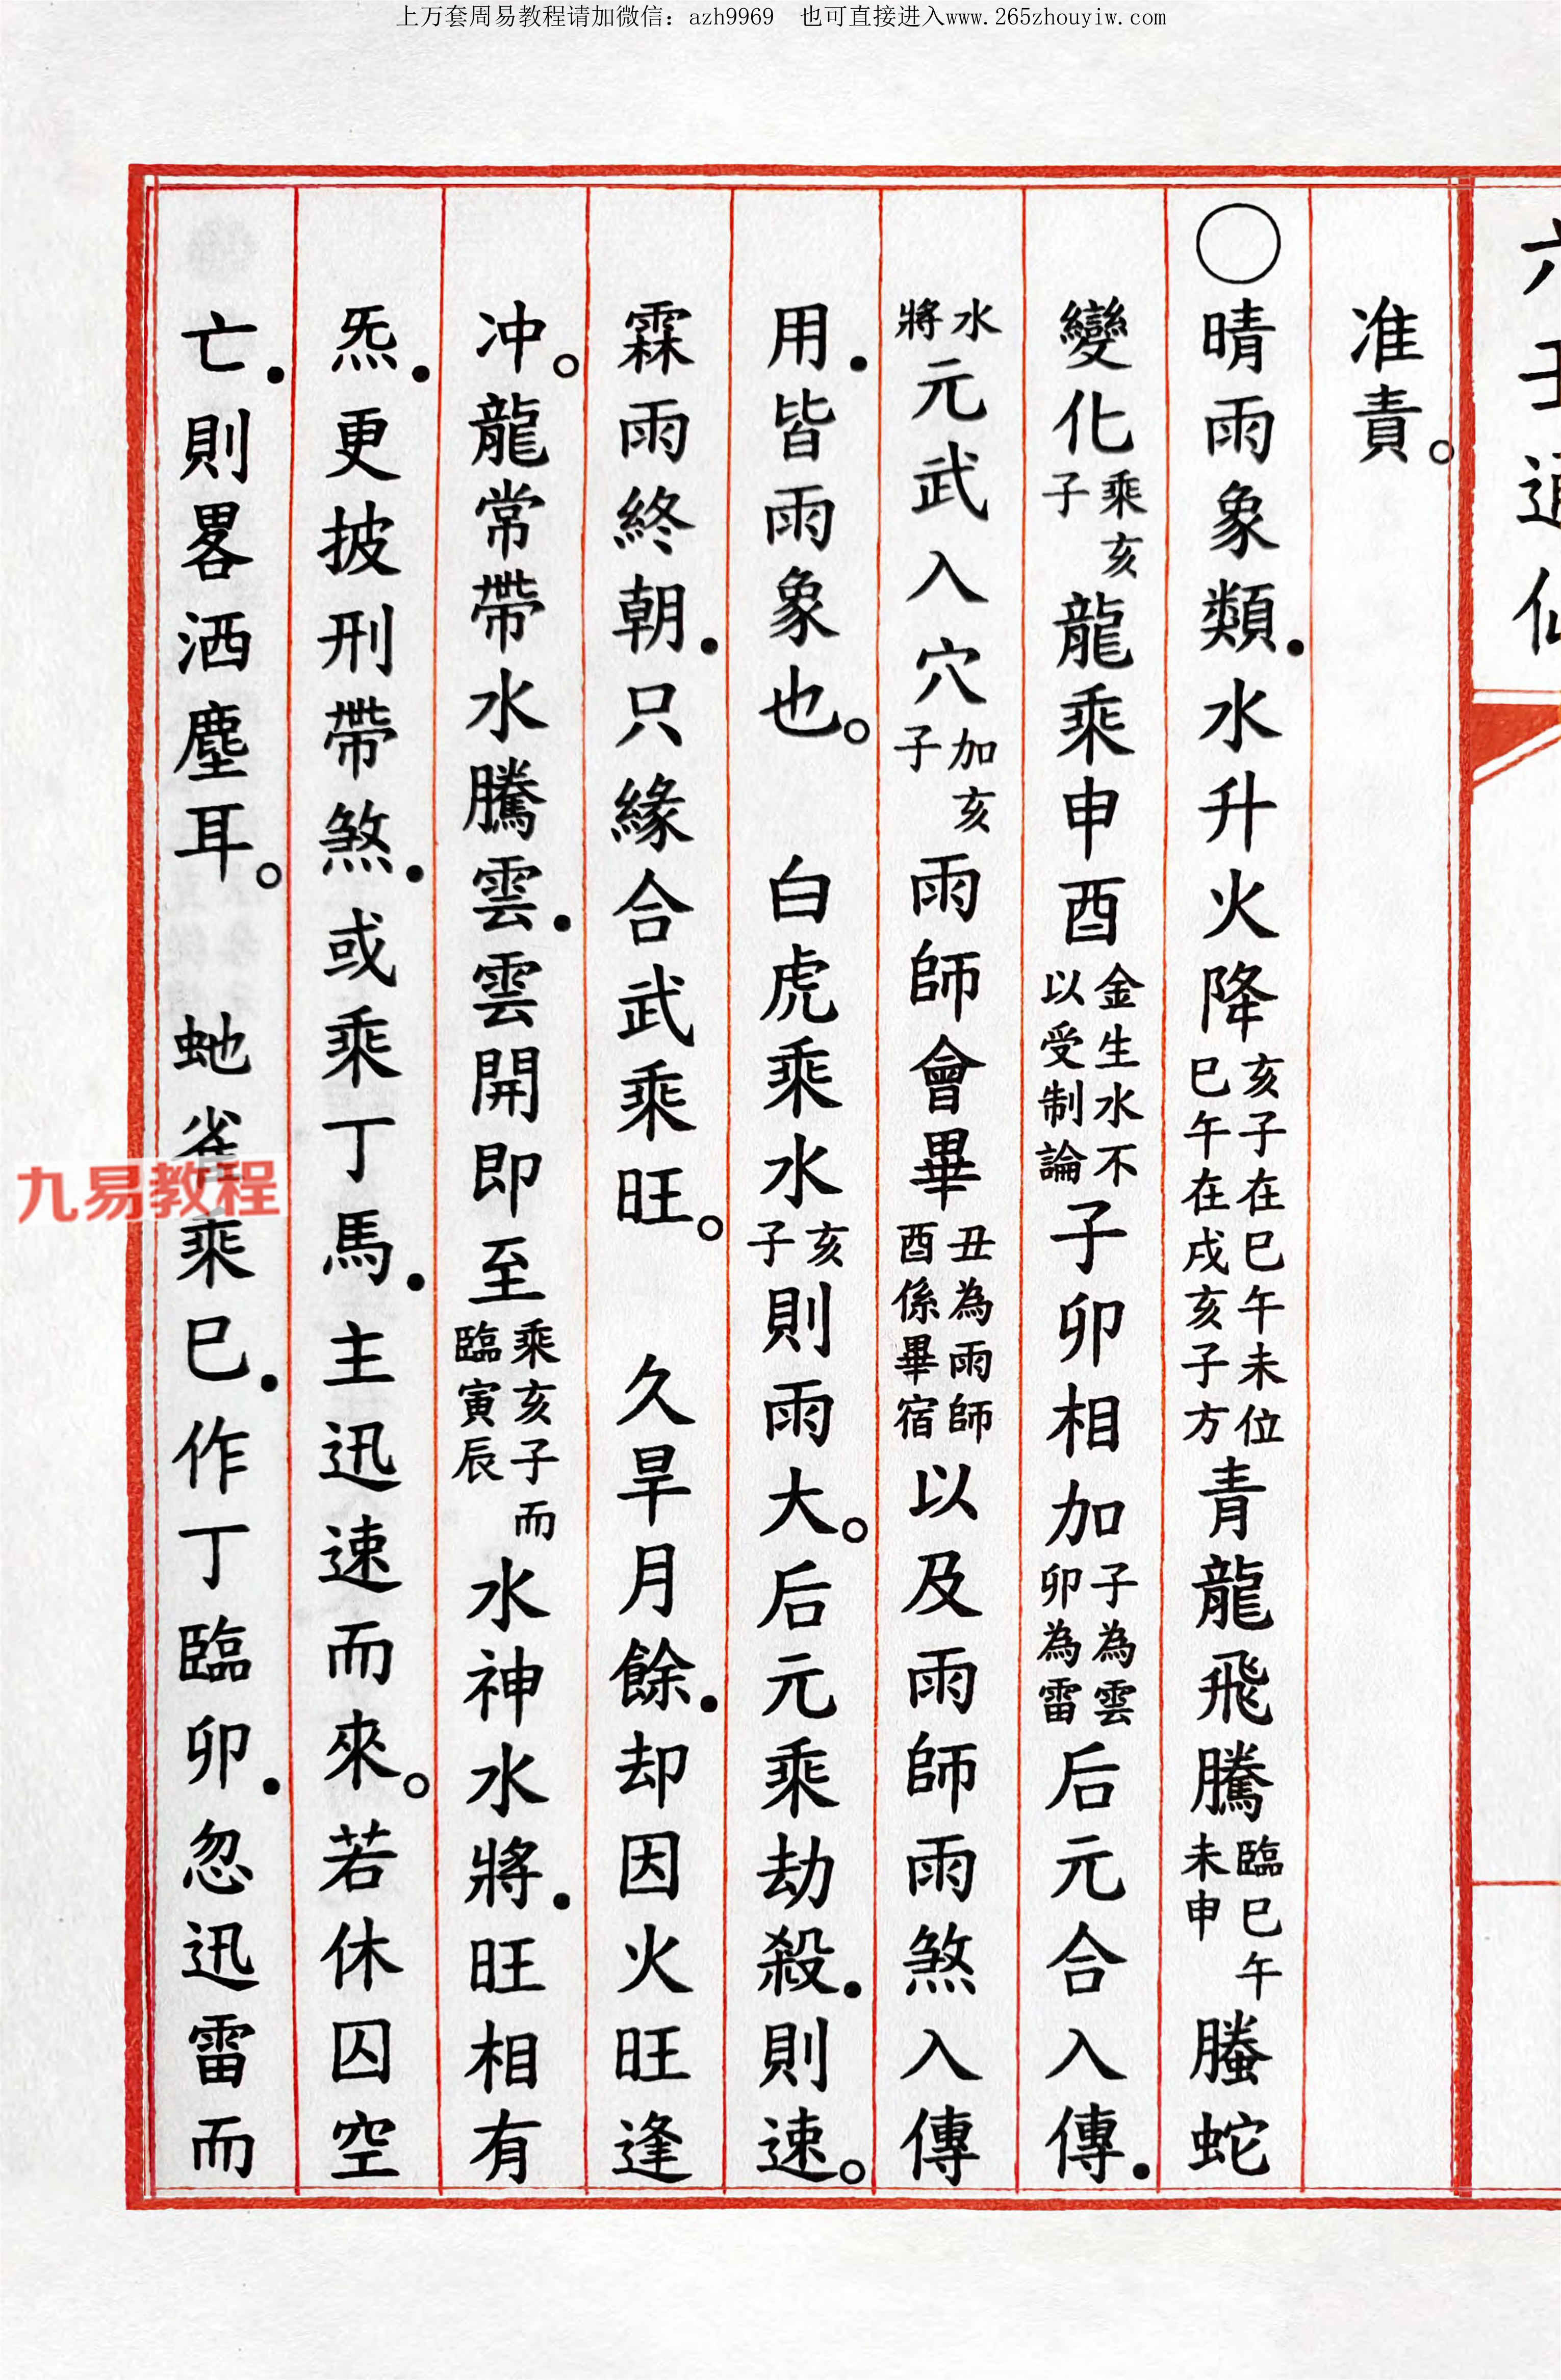 上万套周易教程请加微信：azh9969　也可直接进入www.265zhouyiw.com
六壬通仙
准責。
○晴雨象類．水升火降亥子在巳午未位巳午在戌亥子方青龍飛騰臨巳午未申螣蛇
變化乘亥子龍乘申酉金生水不以受制論子卯相加子為雲卯為雷后元合入傳．
水將元武入穴加亥子雨師會畢丑為雨師酉係畢宿以及雨師雨煞入傳
用．皆雨象也。　白虎乘水亥子則雨大。后元乘劫殺．則速。
霖雨終朝．只緣合武乘旺。　久旱月餘．却因火旺逢
冲。龍常帶水騰雲．雲開即至乘亥子而臨寅辰水神水將．旺相有
炁．更披刑帶煞．或乘丁馬．主迅速而來。若休囚空
亡．則畧洒塵耳。　虵雀乘巳．作丁臨卯．忽迅雷而
九易教程